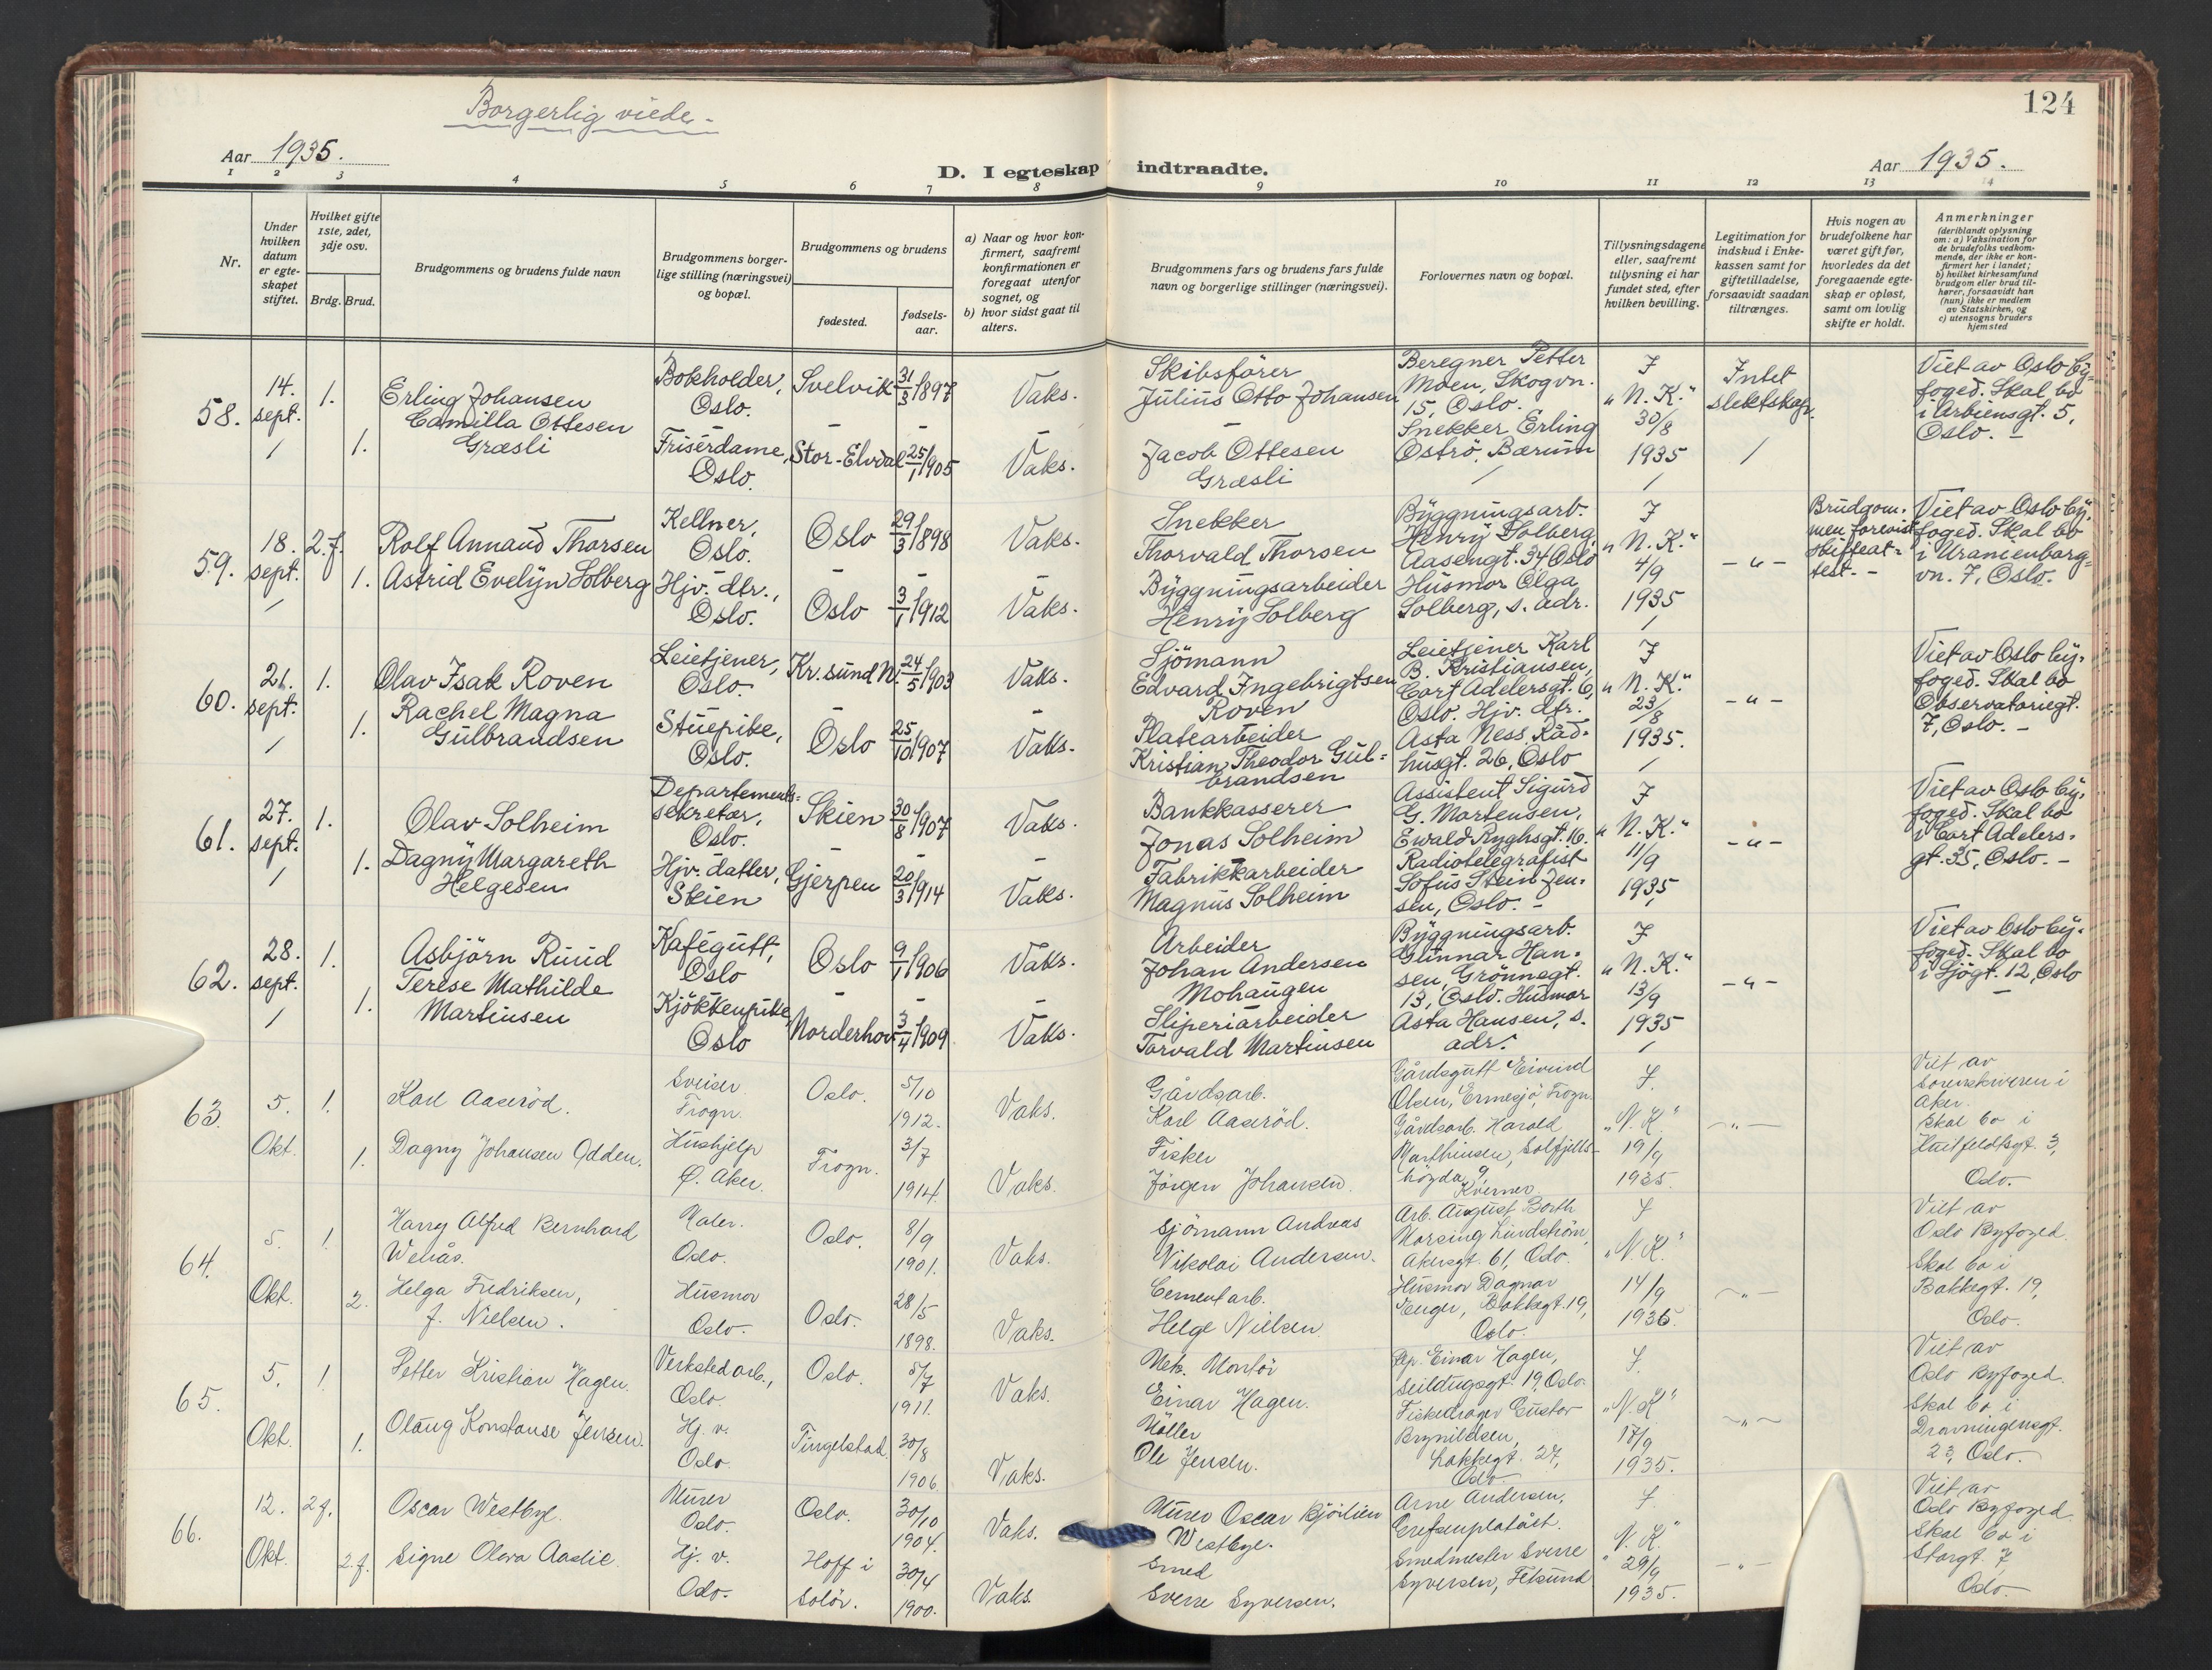 124
Borgerlig viede -
Aar 1935.
D. I egteskap indtraadte.
Aar 1935.
1 2 3 4 5 6 7 8 9 10 11 12 13 14
Nr.
Under hvilken datum er egte-skapet stiftet.
Hvilket gifte 1ste, 2det, 3dje osv.
Brdg. Brud.
Brudgommens og brudens fulde navn
Brudgommens borger-lige stilling (næringsvei) og bopæl.
Brudgommens og brudens
fødested.
fødsels-aar.
a) Naar og hvor kon-firmert, saafremt konfirmationen er foregaat utenfor sognet, og
b) hvor sidst gaat til alters.
Brudgommens fars og brudens fars fulde navn og borgerlige stillinger (næringsvei).
Forlovernes navn og bopæl.
Tillysningsdagene eller, saafremt tillysning ei har fundet sted, efter hvilken bevilling.
Legitimation for indskud i Enke-kassen samt for giftetilladelse, forsaavidt saadan tiltrænges.
Hvis nogen av brudefolkene har været gift før, hvorledes da det foregaaende egte-skap er opløst, samt om lovlig skifte er holdt.
Anmerkninger (deriblandt oplysning om: a) Vaksination for de brudefolks vedkom-mende, der ikke er kon-firmert her i landet; b) hvilket kirkesamfund brudgom eller brud til-hører, forsaavidt han (hun) ikke er medlem av Statskirken, og c) utensogns bruders hjemsted
58. 14. sept. 1. Erling Johansen
Bokholder, Oslo. Svelvik 31/3 1897 Vaks.
Skibsfører Julius Otto Johansen
Beregner Petter Moen, Skogvn. 15, Oslo.
I "N.K." 30/8 1935
Intet slektskap.
Viet av Oslo by-foged. Skal bo i Arbiensgt. 5, Oslo. -
1. Camilla Ottesen Græsli
Frisérdame, Oslo. Stor-Elvdal 25/1 1905 Vaks.
Jacob Ottesen Græsli
Snekker Erling Öströ, Bærum
59. 18. sept. 2. f. Rolf Annand Thorsen
Kellner, Oslo. Oslo 29/3 1898 Vaks.
Snekker Thorvald Thorsen
Byggningsarb. Henry Solberg, Aasengt. 34 Oslo
I "N.K." 4/9 1935
- " -
Brudgom-men forevist skifteat-test. -
Viet av Oslo by-foged. Skal bo i Uranienborg-vn. 7, Oslo.
1. Astrid Evelyn Solberg
Hjv. dtr., Oslo. Oslo 3/1 1912 Vaks.
Byggningsarbeider Henry Solberg
Husmor Olga Solberg, s. adr.
60. 21. sept. 1. Olav Isak Roven
Leietjener, Oslo. Kr.sund N. 24/5 1903 Vaks.
Sjömann Edvard Ingebrigtsen Roven
Leietjener Karl B. Kristiansen, Cort Adelersgt. 6, Oslo.
I "N.K." 23/8 1935.
- " -
Viet av Oslo by-foged. Skal bo Observatoriegt. 7, Oslo. -
1. Rachel Magna Gulbrandsen
Stuepike, Oslo. Oslo 25/10 1907 Vaks.
Platearbeider Kristian Theodor Gul-brandsen
Hjv. dtr. Asta Ness Råd-husgt. 26, Oslo
61. 27. sept. 1. Olav Solheim
Departements-sekretær, Oslo. Skien 30/8 1907 Vaks.
Bankkasserer Jonas Solheim
Assistent Sigurd G. Martensen, Ewald Ryghsgt. 16.
I "N.K." 11/9 1935
- " -
Viet av Oslo by-foged. Skal bo i Cort Adelers-gt. 35, Oslo. -
1. Dagny Margareth Helgesen
Hjv. datter, Skien Gjerpen 20/3 1914 Vaks.
Fabrikkarbeider Magnus Solheim
Radiotelegrafist Sofus Stein Jen-sen, Oslo. -
62. 28. sept. 1. Asbjörn Ruud
Kafégutt, Oslo Oslo 9/1 1906 Vaks.
Arbeider Johan Andersen Mohaugen
Byggningsarb. Gunnar Han-sen, Grönnegt. 13, Oslo.
I "N.K." 13/9 1935
- " -
Viet av Oslo by-foged. Skal bo i Sjögt. 12, Oslo -
1. Terese Mathilde Martinsen
Kjökkenpike Oslo Norderhov 3/4 1909. Vaks.
Sliperiarbeider Torvald Martinsen
Husmor Asta Hansen, s. adr.
63. 5. Okt. 1. Karl Aaserød.
Sveiser Frogn. Oslo. 5/10 1912. Vaks.
Gårdsarb. Karl Aaserød.
Gårdsgutt Eivind Olsen, Ermesjø, Frogn.
I. "N.K." 19/9 1935.
- " -
Viet av Sorenskriveren i Aker. Skal bo i Huitfeldtsgt. 3, Oslo.
1. Dagny Johansen Odden.
Hushjelp Ø. Aker. Frogn. 3/7 1914. Vaks.
Fisker Jørgen Johansen.
Gårdsarb. Harald Marthinsen, Solfjells-høgda 9, Kværner
64. 5. Okt. 1. Harry Alfred Bernhard Wenås.
Maler. Oslo. Oslo. 8/9 1901. Vaks.
Sjømann Andreas Nikolai Andersen.
Arb. August Borth Lundstrøm, Akersgt. 61, Oslo.
I "N.K." 14/9 1935.
- " -
Viet av Oslo Byfoged. Skal bo i Bakkegt. 19, Oslo.
2. Helga Fredriksen, f. Nielsen.
Husmor Oslo. Oslo. 28/5 1898. Vaks.
Cementarb. Helge Nielsen.
Husmor Dagmar Enger, Bakkegt. 19, Oslo.
65. 5. Okt. 1. Petter Kristian Hagen.
Verkstedarb., Oslo. Oslo. 5/7 1911. Vaks.
Mek. Montør Einar Hagen.
Rep. Einar Hagen, Seildugsgt. 19, Oslo.
I "N.K" 17/9 1935.
- " -
Viet av Oslo Byfoged. Skal bo i Dronningensgt. 23, Oslo.
1. Olaug Konstanse Jensen.
Hj. v. Oslo. Tingelstad 30/8 1906 Vaks.
Møller Ole Jensen.
Fiskedrager Gustav Brynildsen, Lakkegt. 27, Oslo.
66. 12. Okt. 2 f. Oscar Westbye.
Murer Oslo. Oslo. 30/10 1904. Vaks.
Murer Oscar Westbye.
Arne Andersen, Grefsenplatået.
I. "N.K." 29/9 1935.
- " -
Viet av Oslo Byfoged. Skal bo i Storgt. 7, Oslo.
2. f. Signe Olava Aaslie.
Hj. v. Oslo. Hoff i Solør. 30/4 1900. Vaks.
Smed Sverre Syversen.
Smedmester Sverre Syversen, Fetsund